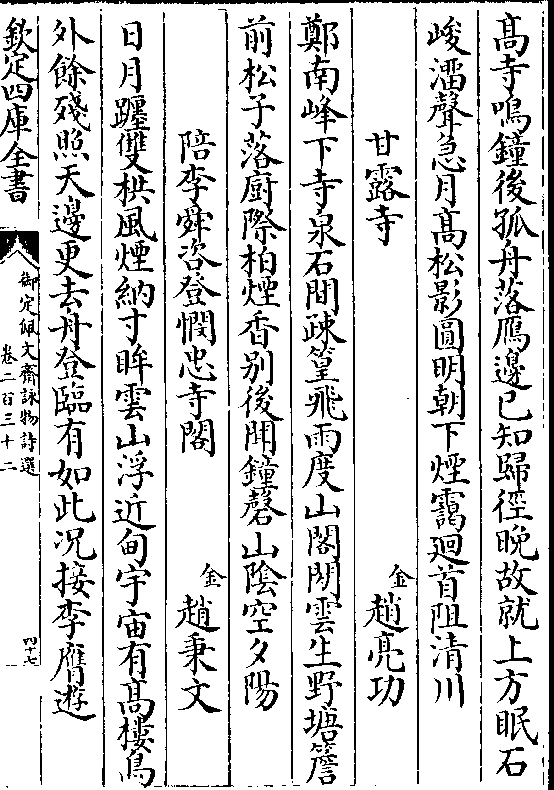 高寺鳴鐘後孤舟落鴈邊已知歸徑晩故就上方眠石
峻澑聲急月髙松影圓明朝下煙靄廻首阻清川
甘露寺　金　趙亮功
鄭南峰下寺泉石間疎篁飛雨度山閣閒雲生野塘簷
前松子落廚際柏煙香别後聞鐘磬山陰空夕陽
陪李舜咨登憫忠寺閣　金　趙秉文
日月躔雙栱風煙納寸眸雲山浮近甸宇宙有髙樓鳥
外餘殘照天邊更去舟登臨有如此况接李膺遊
欽定四庫全書　御定佩文齋詠物詩選 卷二百三十二　四十七